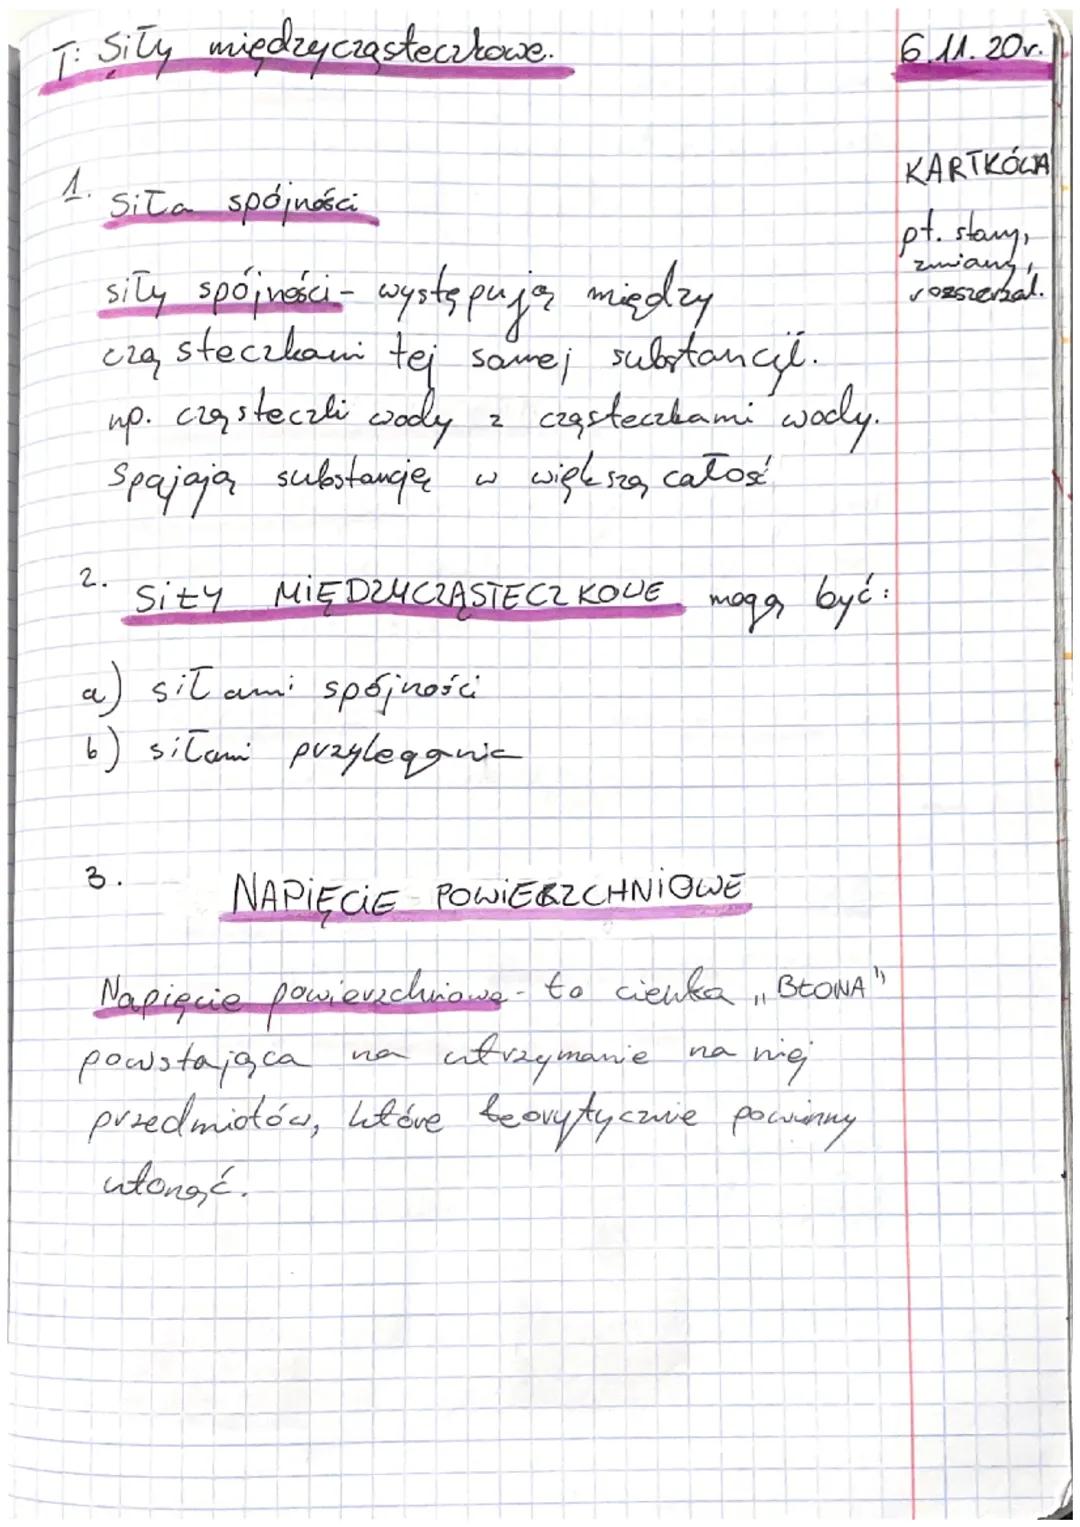 T: Siły międzycząsteczkowe.
6.11.20r.
KARTKÓWA
pt. stany,
zmiany,
rozszerzal.
1. Siła spójności
siły spójności - występują między
cząsteczkami tej samej substancji.
np. cząsteczki wody z cząsteczkami wody.
Spajają substancję w większą całość
2. SiŁY MiĘDZYCZĄSTECZKOWE mogą być:
a) siłami spójności
b) siłami przylegania
3. NAPiĘCiE POWiERZCHNiOWE
Napięcie powierzchniowe - to cienka „BŁONA”
powstająca na utrzymanie na niej
przedmiotów, które teorytycznie powinny
utonąć.